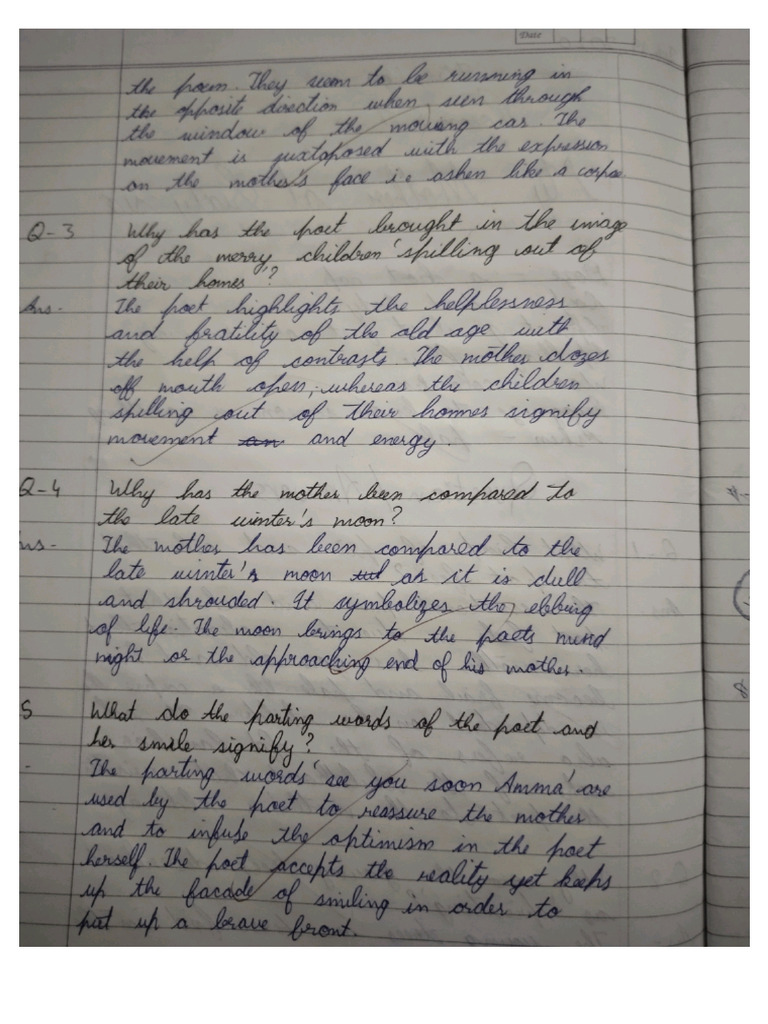 Date
the poem. They seem to be running in
the opposite direction when seen through
the window of the moving car. The
movement is juxtaposed with the expression
on the mother's face i.e ashen like a corpse
Q-3 Why has the poet brought in the image
of the merry children 'spilling out of
their homes'?
Ans- The poet highlights the helplessness
and fratility of the old age with
the help of contrasts. The mother dozes
off mouth open, whereas the children
spilling out of their homes signify
movement an and energy.
Q-4 Why has the mother been compared to
the late winter's moon?
Ans- The mother has been compared to the
late winter's moon as it is dull
and shrouded. It symbolizes the ebbing
of life. The moon brings to the poets mind
night or the approaching end of his mother.
5 What do the parting words of the poet and
her smile signify?
The parting words 'see you soon Amma' are
used by the poet to reassure the mother
and to infuse the optimism in the poet
herself. The poet accepts the reality yet keeps
up the facade of smiling in order to
put up a brave front.